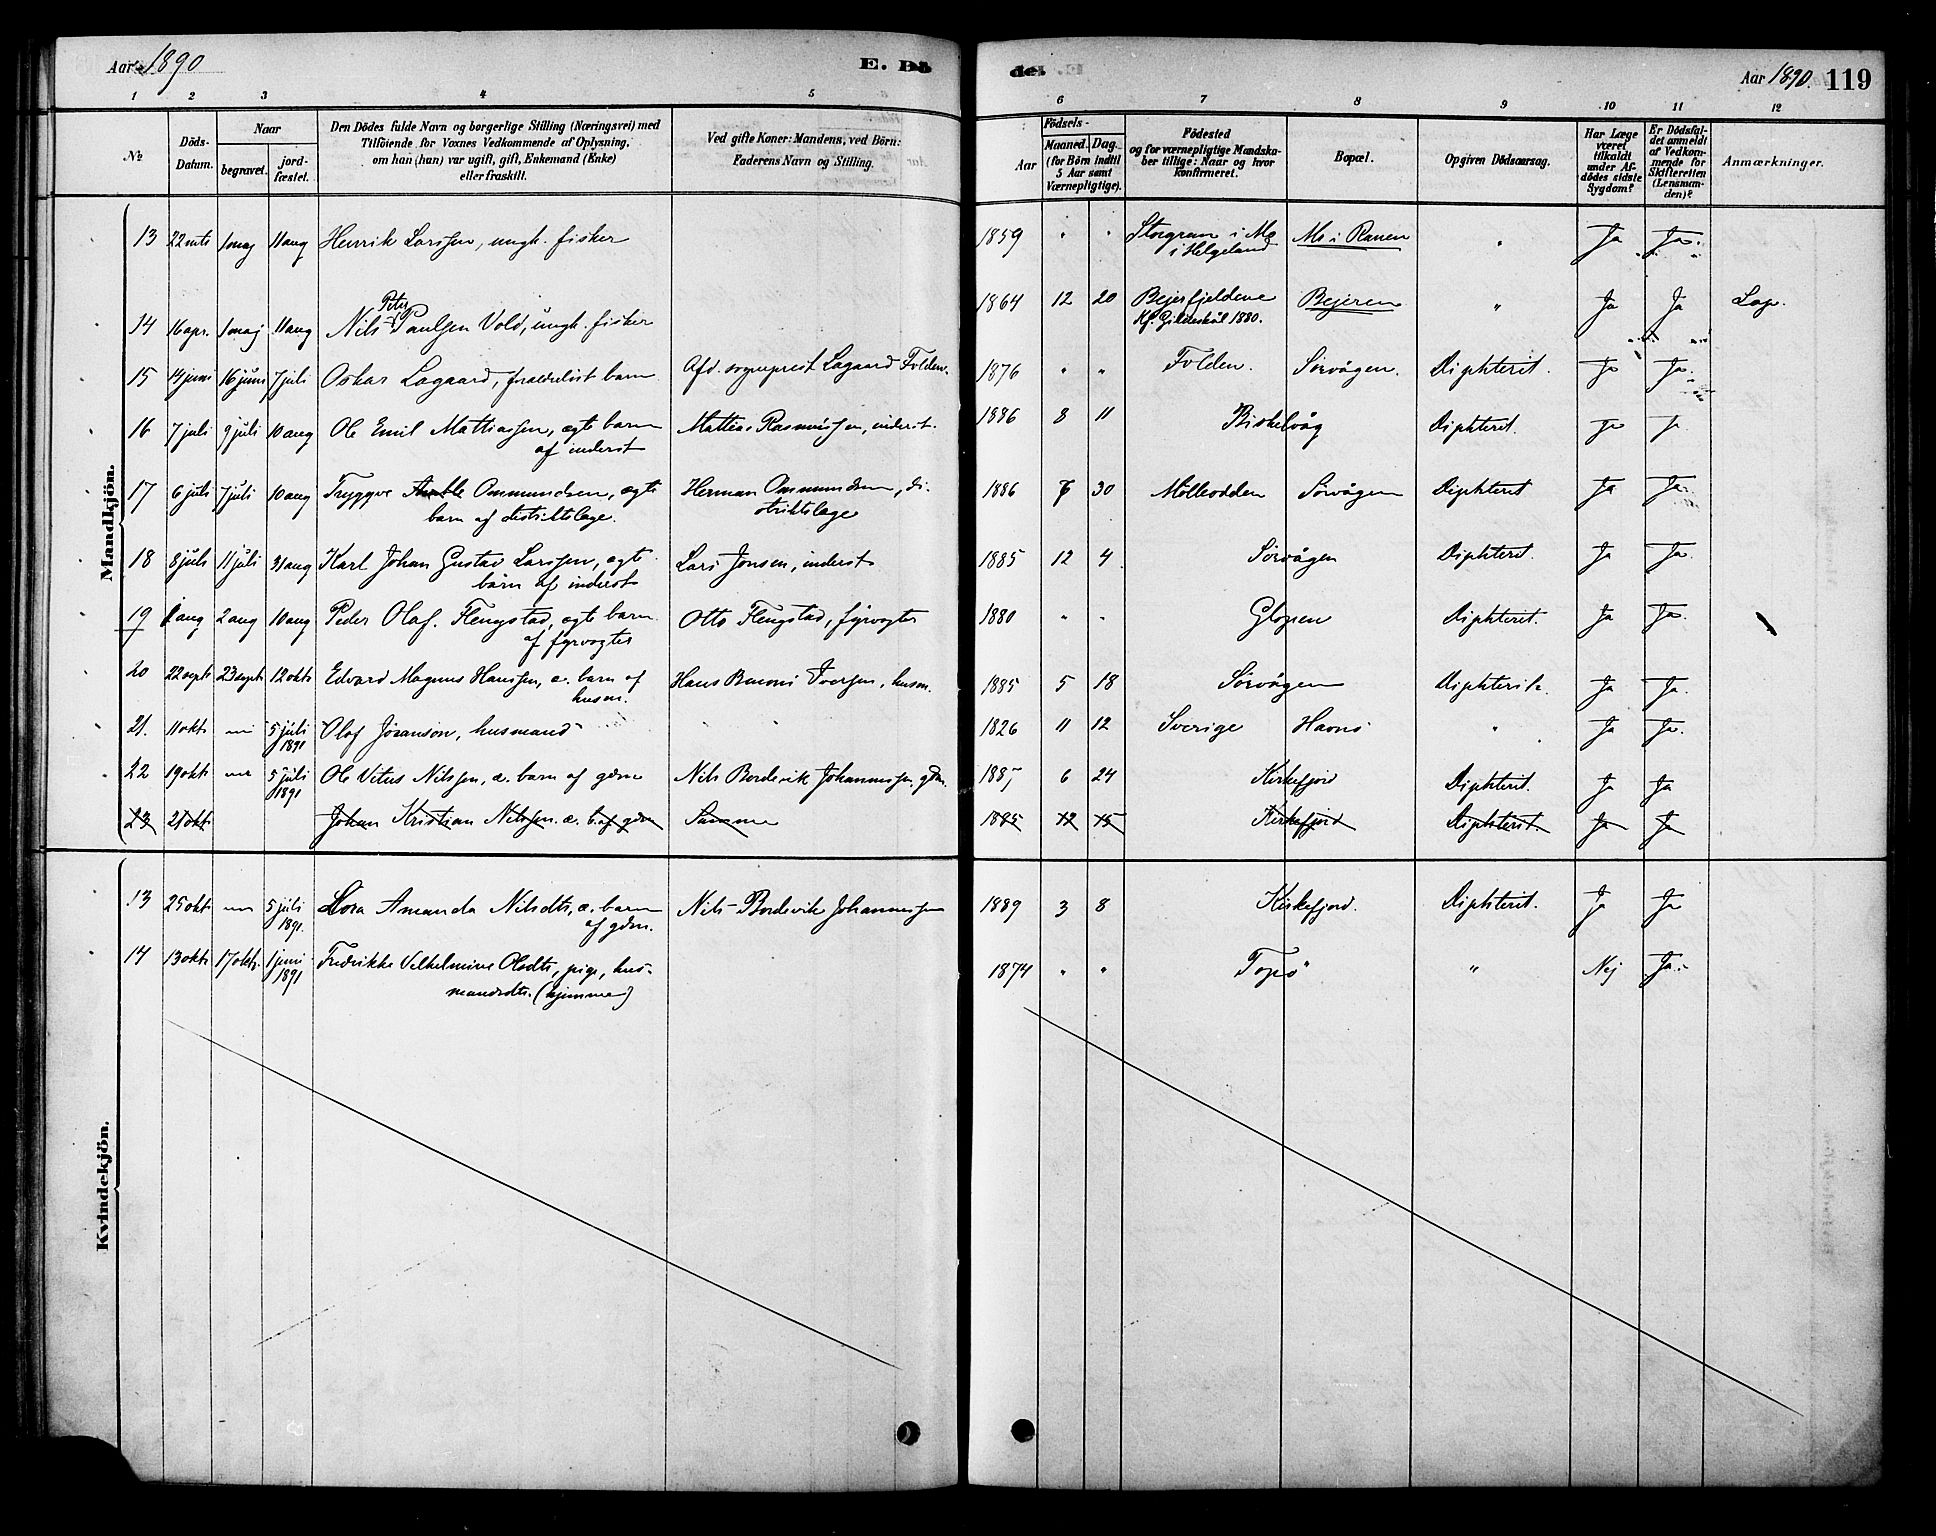 Aar 1890
E. Dö
del.
Aar 1890. 119
1 2 3 4 5 6 7 8 9 10 11 12
№
Döds-
Datum.
Naar
begravet. jord-
fæstet.
Den Dödes fulde Navn og borgerlige Stilling (Næringsvei) med
Tilföiende for Voxnes Vedkommende af Oplysning,
om han (hun) var ugift, gift, Enkemand (Enke)
eller fraskilt.
Ved gifte Koner: Mandens, ved Börn:
Faderens Navn og Stilling.
Födsels-
Aar Maaned. Dag.
(for Börn indtil
5 Aar samt
Værnepligtige).
Födested
og for værnepligtige Mandska-
ber tillige: Naar og hvor
konfirmeret.
Bopæl.
Opgiven Dödsaarsag.
Har Læge
været
tilkaldt
under Af-
dödes sidste
Sygdom?
Er Dödsfal-
det anmeldt
af Vedkom-
mende for
Skifteretten
(Lensman-
den)?
Anmærkninger.
Mandkjön.
13 22 mts 1 maj 11 aug Henrik Larssen, ungk. fisker 1859 " " i Mo Mo i Ranen " Ja Ja.
i Helgeland
Peter
14 16 apr. 1 maj 11 aug Nils Paulsen Vold, ungk. fisker 1864 12 20 Bejerfjeldene Bejeren " Ja Ja Lap.
Kf. Gildeskål 1880.
15 14 juni 16 juni 7 juli Oskar Lagaard, forældrelöst barn Afd. sogneprest Lagaard Folden. 1876 " " Folden. Sörvågen. Diphterit. Ja Ja.
16 7 juli 9 juli 10 aug Ole Emil Mathiassen, ægte barn Mattias Rasmussen, inderst. 1886 8 11 Diphterit. Ja Ja
af inderst
17 6 juli 7 juli 10 aug Tryggve Ommundsen, ægte Herman Ommundsen, di- 1886 7 30 Mölleodden Sörvågen Diphterit Ja Ja.
barn af distriktslæge. striktslæge
18 8 juli 11 juli 31 aug Karl Johan Gustav Larssen, ægte Lars Jonsen, inderst 1885 12 4 Sörvågen Diphterit. Ja Ja.
barn af inderst
19 1 aug 2 aug 10 aug Peder Olaf. Flengstad, ægte barn Otto Flengstad, fyrvogter 1880 " " Glopen Diphterit. Ja Ja.
af fyrvogter
20 22 sept 23 sept 12 okt Edvard Magnus Hanssen, æ. barn af Hans Benoni Iversen, husm. 1885 5 18 Sörvågen Diphterit. Ja Ja.
husm.
21. 11 okt 5 juli Olaf Jöranson, husmand 1826 11 12 Sverige Havnö " Ja Ja.
1891
22 19 okt 5 juli Ole Vitus Nilssen, æ. barn af gdm Nils Bordevik Johannessen gdm. 1887 6 24 Kirkefjord Diphterit. Ja Ja
1891
23 21 okt Johan Kristian Nilssen æ. b. af gdm Samme 1885 12 15 Kirkefjord Diphterit. Ja Ja
Kvindekjön.
13 25 okt 5 juli Amanda Nilsdtr, æ. barn Nils Bordevik Johannessen 1889 3 8 Kirkefjord. Diphterit. Ja Ja
1891. af gdm.
14 13 okt 17 okt. 1 juni Fredrikke Vilhelmine Olsdtr, pige, hus- 1874 " " Topö " Nej Ja.
1891 mandsdtr. (hjemme)